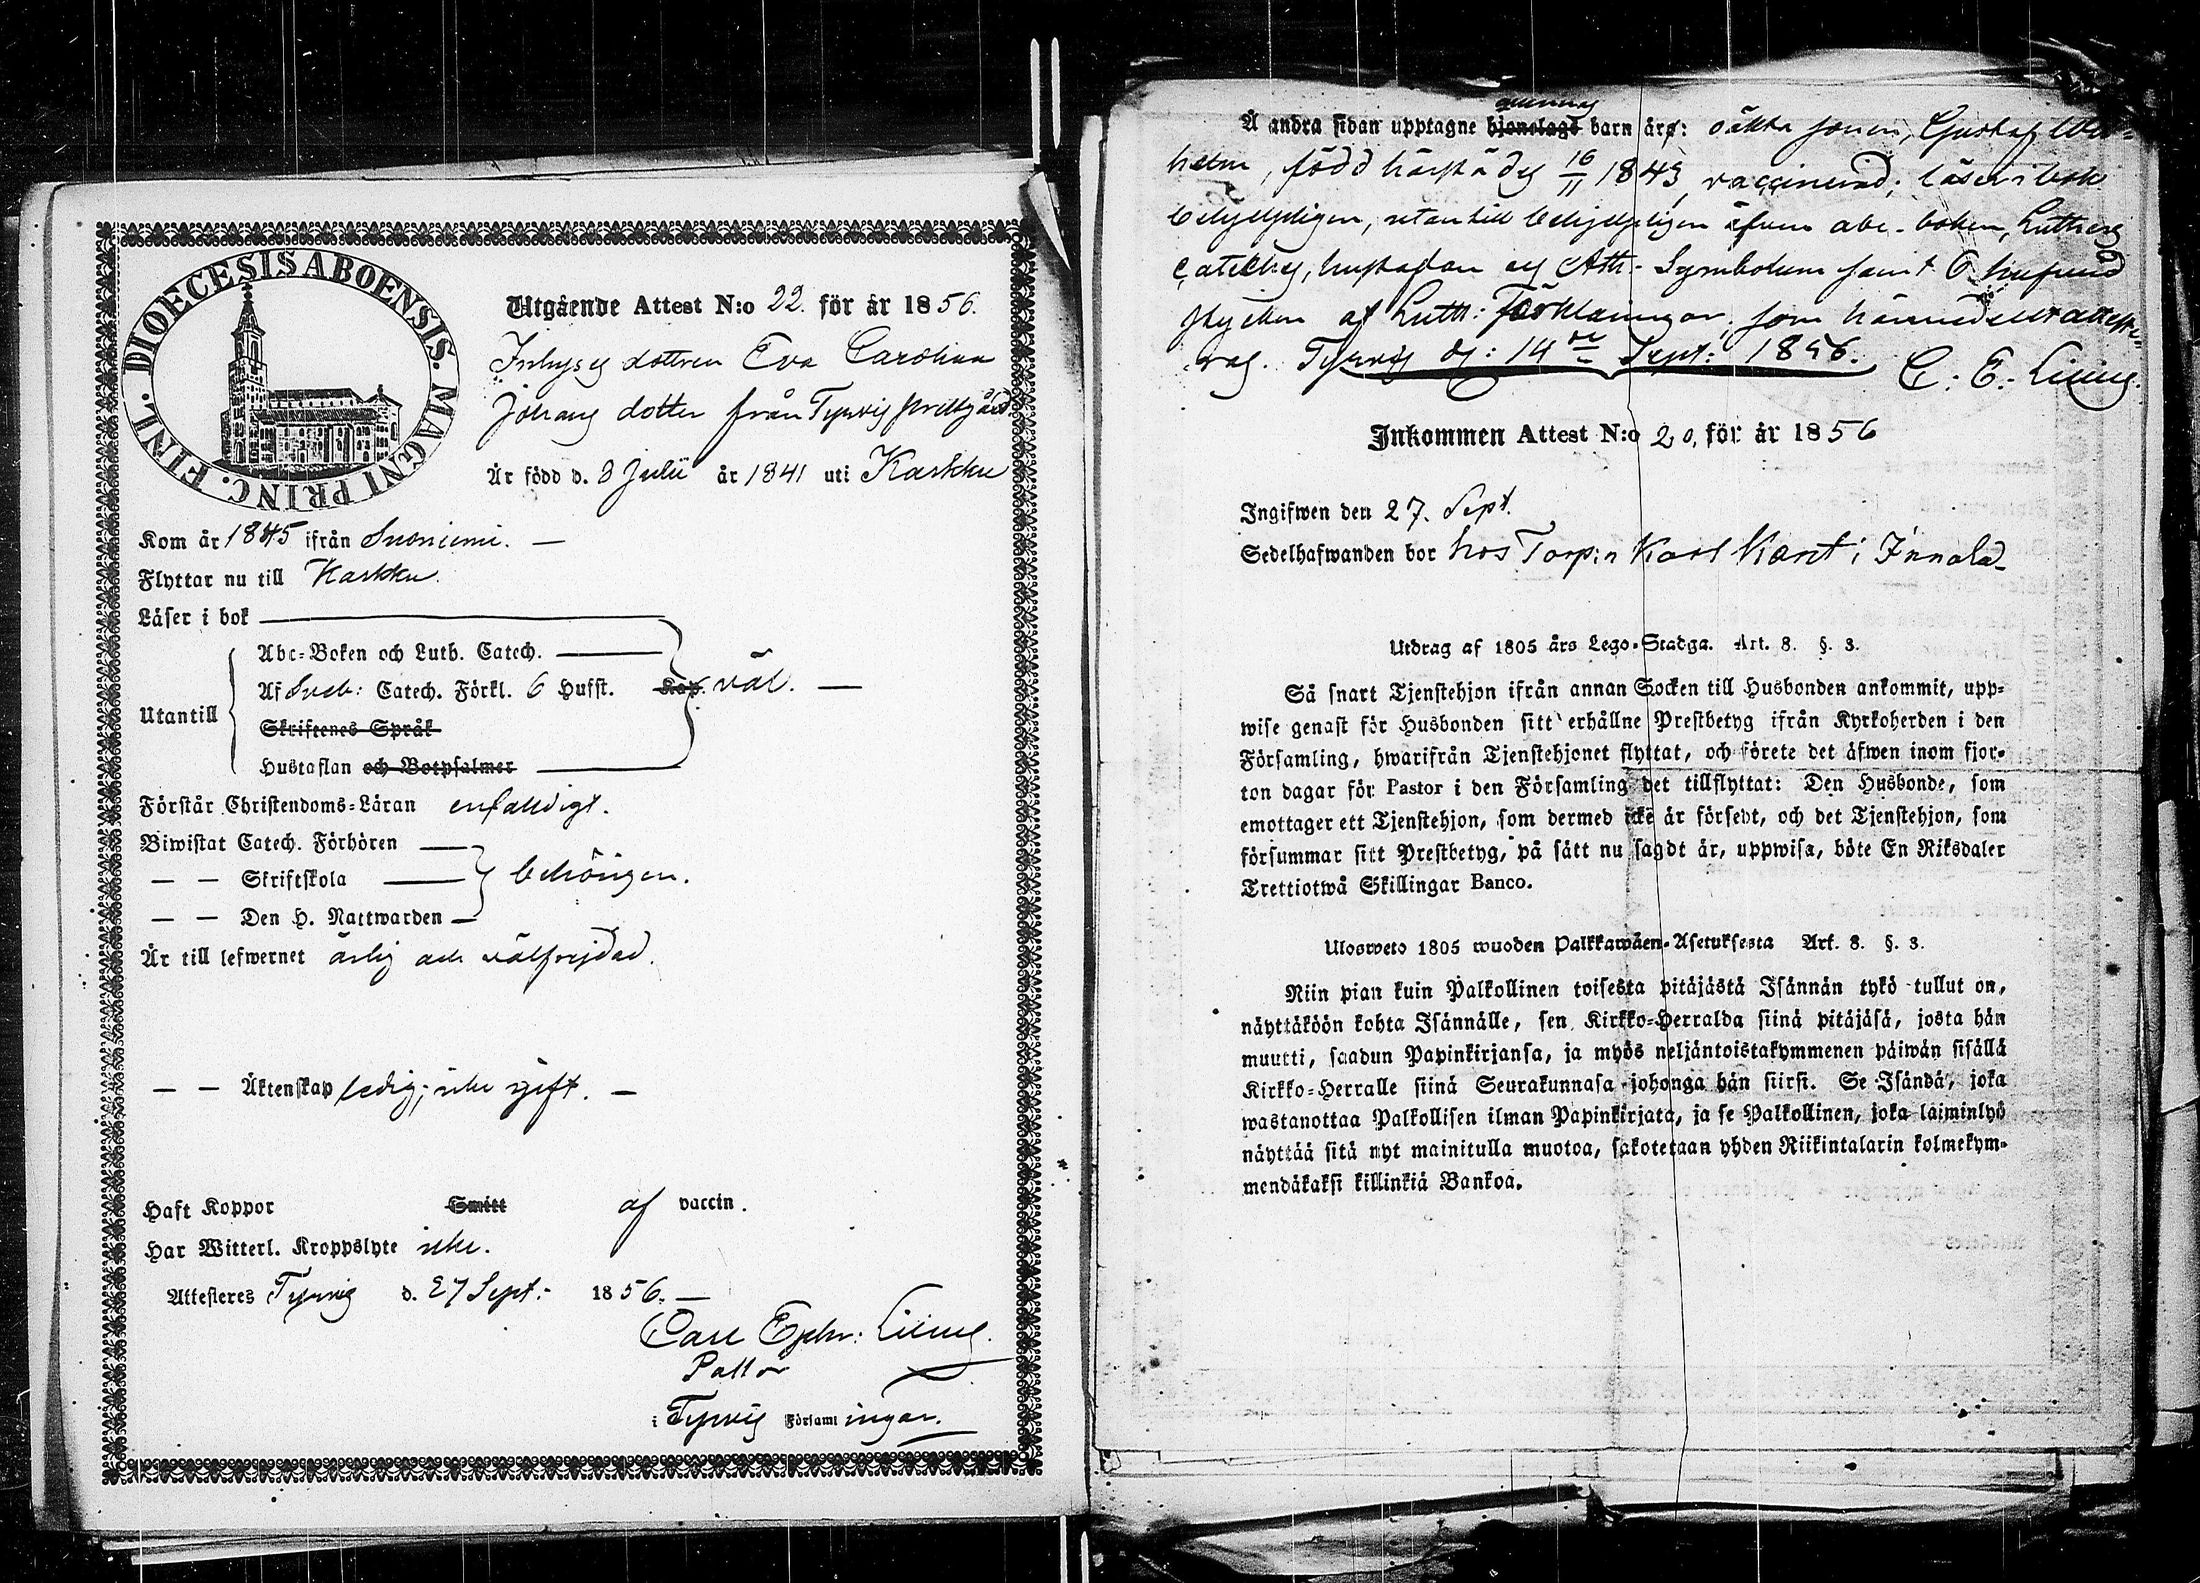 DIOECESIS ABOENSIS. MAGNI PRINC. FINL.
Utgående Attest N:o 22. för år 1856.
Inhyses dottren Eva Carolina
Johans dotter från Tyrvis prestgård
Är född d. 8 Julii år 1841 uti Karkku
Kom år 1845 ifrån Suoniemi. —
Flyttar nu till Karkku.
Läser i bok
Utantill
Abc-Boken och Luth. Catech.
Af Sveb: Catech. Förkl. 6 Hufst. Kap. väl. —
Skriftenes Språk
Hustaflan och Botpsalmer
Förstår Christendoms-Läran enfaldigt.
Biwistat Catech. Förhören
— — Skriftskola behörigen.
— — Den H. Nattwarden
Är till lefwernet ärlig och välfrejdad.
— — Äktenskap ledig; icke gift. —
Haft Koppor Smitt af vaccin.
Har Witterl. Kroppslyte icke.
Attesteres Tyrvis d. 27 Sept:- 1856. —
Carl Ephr: Lilius.
Pastor
i Tyrvis Församl ingar.
Å andra sidan upptagne hjonelags barn äro: oäkta sonen, Gustaf Wil-
helm, född härstädes 16/11 1843, vaccinerad; läser i bok
behjelpligen, utantill behjelpligen äfven abc-boken, Luthers
Catechs, hustaflan och Ath:- Symbolum samt 6 hufvud
stycken af Luth: Förklaringar, som härmedelst atteste-
ras. Tyrvis d: 14de Sept: 1856. C: E: Lilius.
Inkommen Attest N:o 20, för år 1856
Ingifwen den 27. Sept.
Sedelhafwanden bor hos Torp:n Karl Karst i Innala
Utdrag af 1805 års Lego-Stadga. Art. 8. §. 3.
Så snart Tjenstehjon ifrån annan Socken till Husbonden ankommit, upp-
wise genast för Husbonden sitt erhållne Prestbetyg ifrån Kyrkoherden i den
Församling, hwarifrån Tjenstehjonet flyttat, och förete det äfwen inom fjor-
ton dagar för Pastor i den Församling det tillflyttat: Den Husbonde, som
emottager ett Tjenstehjon, som dermed icke är försedt, och det Tjenstehjon, som
försummar sitt Prestbetyg, på sätt nu sagdt är, uppwisa, böte En Riksdaler
Trettiotwå Skillingar Banco.
Ulosweto 1805 wuoden Palkkawäen-Asetuksesta Art. 8. §. 3.
Niin pian kuin Palkollinen toisesta pitäjästä Isännän tykö tullut on,
näyttäköön kohta Isännälle, sen Kirkko-Herralda siinä pitäjäsä, josta hän
muutti, saadun Papinkirjansa, ja myös neljäntoistakymmenen päiwän sisällä
Kirkko-Herralle siinä Seurakunnasa johonga hän siirsi. Se Isändä, joka
wastanottaa Palkollisen ilman Papinkirjata, ja se Palkollinen, joka laiminlyö
näyttää sitä nyt mainitulla muotoa, sakotetaan yhden Riikintalarin kolmekym-
mendäkaksi killinkiä Bankoa.